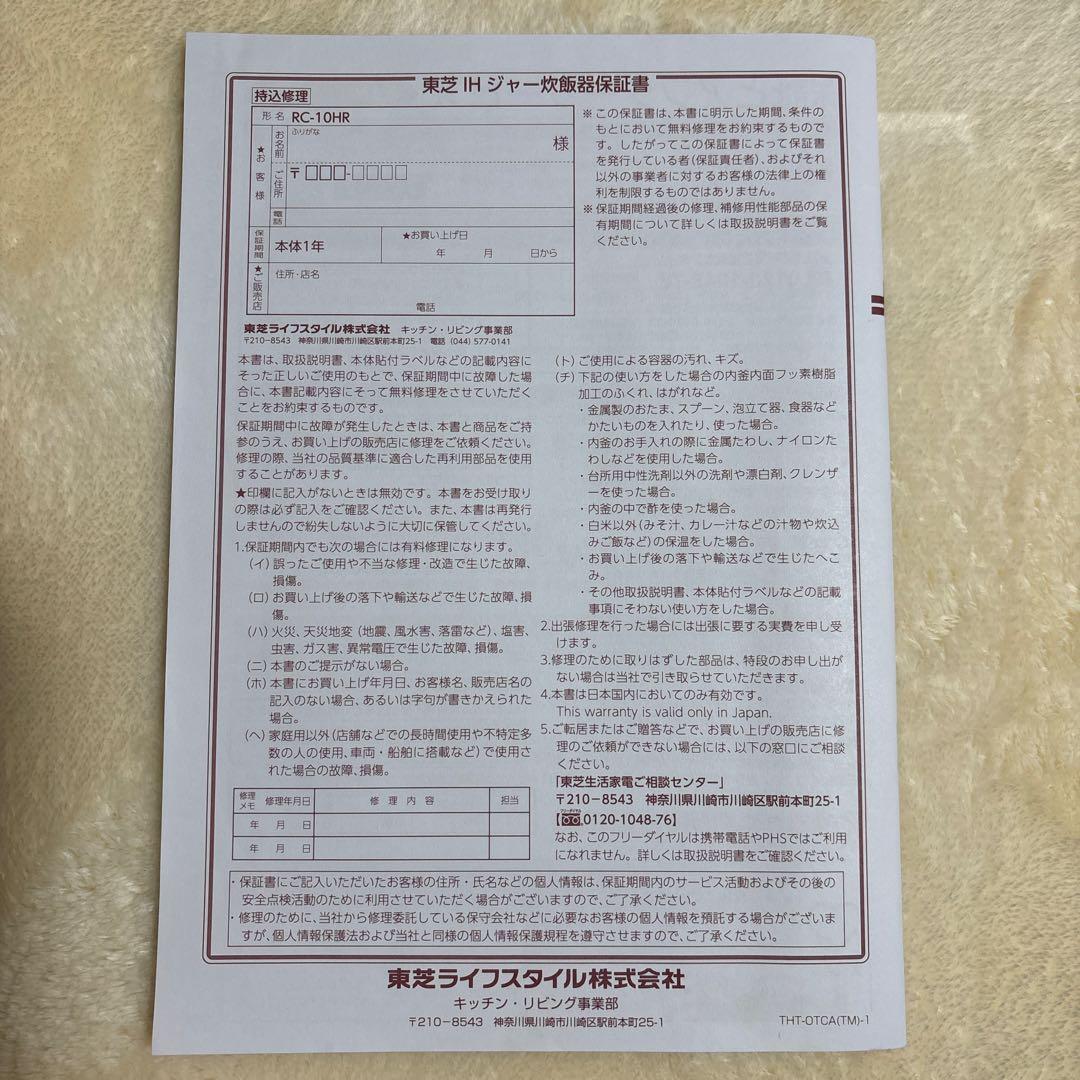 東芝 IH ジャー炊飯器保証書
持込修理
形名 RC-10HR
★お客様
お名前
ふりがな
様
ご住所
〒□□□-□□□□
電話
保証期間
本体1年
★お買い上げ日
年 月 日から
★ご販売店
住所・店名
電話
※この保証書は、本書に明示した期間、条件の
もとにおいて無料修理をお約束するもので
す。したがってこの保証書によって保証書
を発行している者（保証責任者）、およびそれ
以外の事業者に対するお客様の法律上の権
利を制限するものではありません。
※保証期間経過後の修理、補修用性能部品の保
有期間について詳しくは取扱説明書をご覧
ください。
東芝ライフスタイル株式会社 キッチン・リビング事業部
〒210-8543 神奈川県川崎市川崎区駅前本町25-1 電話 (044) 577-0141
本書は、取扱説明書、本体貼付ラベルなどの記載内容に
そった正しいご使用のもとで、保証期間中に故障した場
合に、本書記載内容にそって無料修理をさせていただく
ことをお約束するものです。
保証期間中に故障が発生したときは、本書と商品をご持
参のうえ、お買い上げの販売店に修理をご依頼ください。
修理の際、当社の品質基準に適合した再利用部品を使用
することがあります。
★印欄に記入がないときは無効です。本書をお受け取り
の際は必ず記入をご確認ください。また、本書は再発行
しませんので紛失しないように大切に保管してください。
1.保証期間内でも次の場合には有料修理になります。
（イ）誤ったご使用や不当な修理・改造で生じた故障、
損傷。
（ロ）お買い上げ後の落下や輸送などで生じた故障、損
傷。
（ハ）火災、天災地変（地震、風水害、落雷など）、塩害、
虫害、ガス害、異常電圧で生じた故障、損傷。
（ニ）本書のご提示がない場合。
（ホ）本書にお買い上げ年月日、お客様名、販売店名の
記入のない場合、あるいは字句が書きかえられた
場合。
（ヘ）家庭用以外（店舗などでの長時間使用や不特定多
数の人の使用、車両・船舶に搭載など）で使用さ
れた場合の故障、損傷。
修理メモ 修理年月日 修理内容 担当
年 月 日
年 月 日
（ト）ご使用による容器の汚れ、キズ。
（チ）下記の使い方をした場合の内釜内面フッ素樹脂
加工のふくれ、はがれなど。
・金属製のおたま、スプーン、泡立て器、食器など
かたいものを入れたり、使った場合。
・内釜のお手入れの際に金属たわし、ナイロンた
わしなどを使用した場合。
・台所用中性洗剤以外の洗剤や漂白剤、クレンザ
ーを使った場合。
・内釜の中で酢を使った場合。
・白米以外（みそ汁、カレー汁などの汁物や炊込
みご飯など）の保温をした場合。
・お買い上げ後の落下や輸送などで生じたへこ
み。
・その他取扱説明書、本体貼付ラベルなどの記載
事項にそわない使い方をした場合。
2.出張修理を行った場合には出張に要する実費を申し受
けます。
3.修理のために取りはずした部品は、特段のお申し出が
ない場合は当社で引き取らせていただきます。
4.本書は日本国内においてのみ有効です。
This warranty is valid only in Japan.
5.ご転居またはご贈答などで、お買い上げの販売店に修
理のご依頼ができない場合には、以下の窓口にご相談
ください。
「東芝生活家電ご相談センター」
〒210-8543 神奈川県川崎市川崎区駅前本町25-1
【フリーダイヤル 0120-1048-76】
なお、このフリーダイヤルは携帯電話やPHSではご利用
になれません。詳しくは取扱説明書をご確認ください。
・保証書にご記入いただいたお客様の住所・氏名などの個人情報は、保証期間内のサービス活動およびその後の
安全点検活動のために利用させていただく場合がございますので、ご了承ください。
・修理のために、当社から修理委託している保守会社などに必要なお客様の個人情報を預託する場合がございま
すが、個人情報保護法および当社と同様の個人情報保護規程を遵守させますので、ご了承ください。
東芝ライフスタイル株式会社
キッチン・リビング事業部
〒210-8543 神奈川県川崎市川崎区駅前本町25-1
THT-OTCA(TM)-1